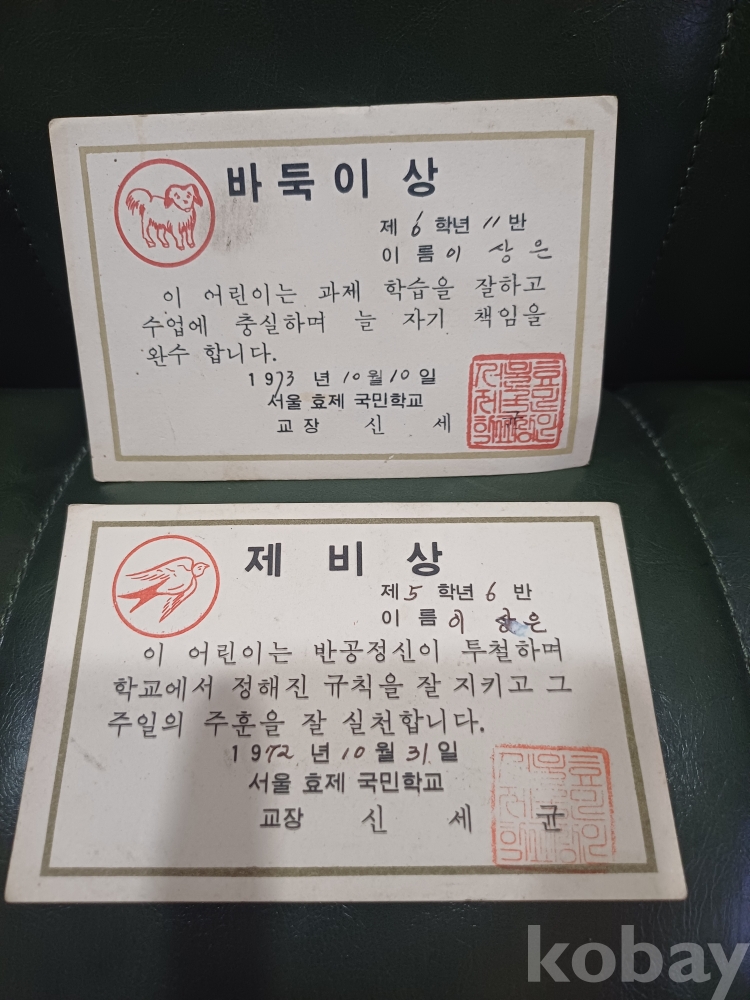 바둑이 상
제 6 학년 11 반
이 름 이 상 은
이 어린이는 과제 학습을 잘하고
수업에 충실하며 늘 자기 책임을
완수 합니다.
1973 년 10 월 10 일
서울 효제 국민학교
교 장 신 세 균
제 비 상
제 5 학년 6 반
이 름 이 상 은
이 어린이는 반공정신이 투철하며
학교에서 정해진 규칙을 잘 지키고 그
주일의 주훈을 잘 실천합니다.
1972 년 10 월 31 일
서울 효제 국민학교
교장 신 세 균
kobay